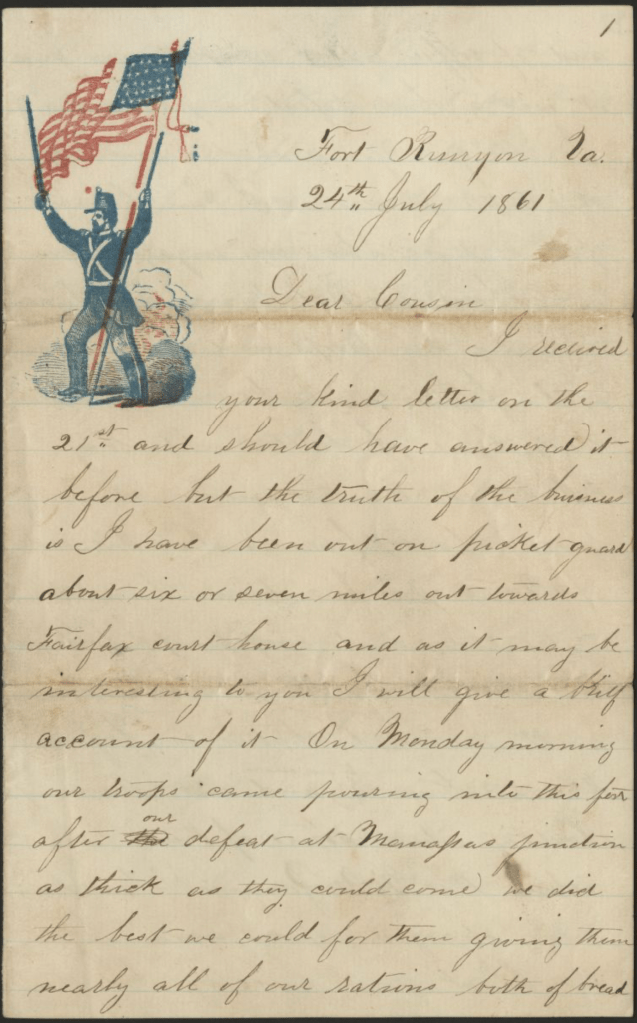 1
Fort Runyon Va.
24th July 1861
Dear Cousin
I received
your kind letter on the
21st and should have answered it
before but the truth of the buisness
is I have been out on picket guard
about six or seven miles out towards
Fairfax court house and as it may be
interesting to you I will give a brief
account of it On Monday morning
our troops came pouring into this fort
after the our defeat at Manassas junction
as thick as they could come we did
the best we could for them giving them
nearly all of our rations both of bread